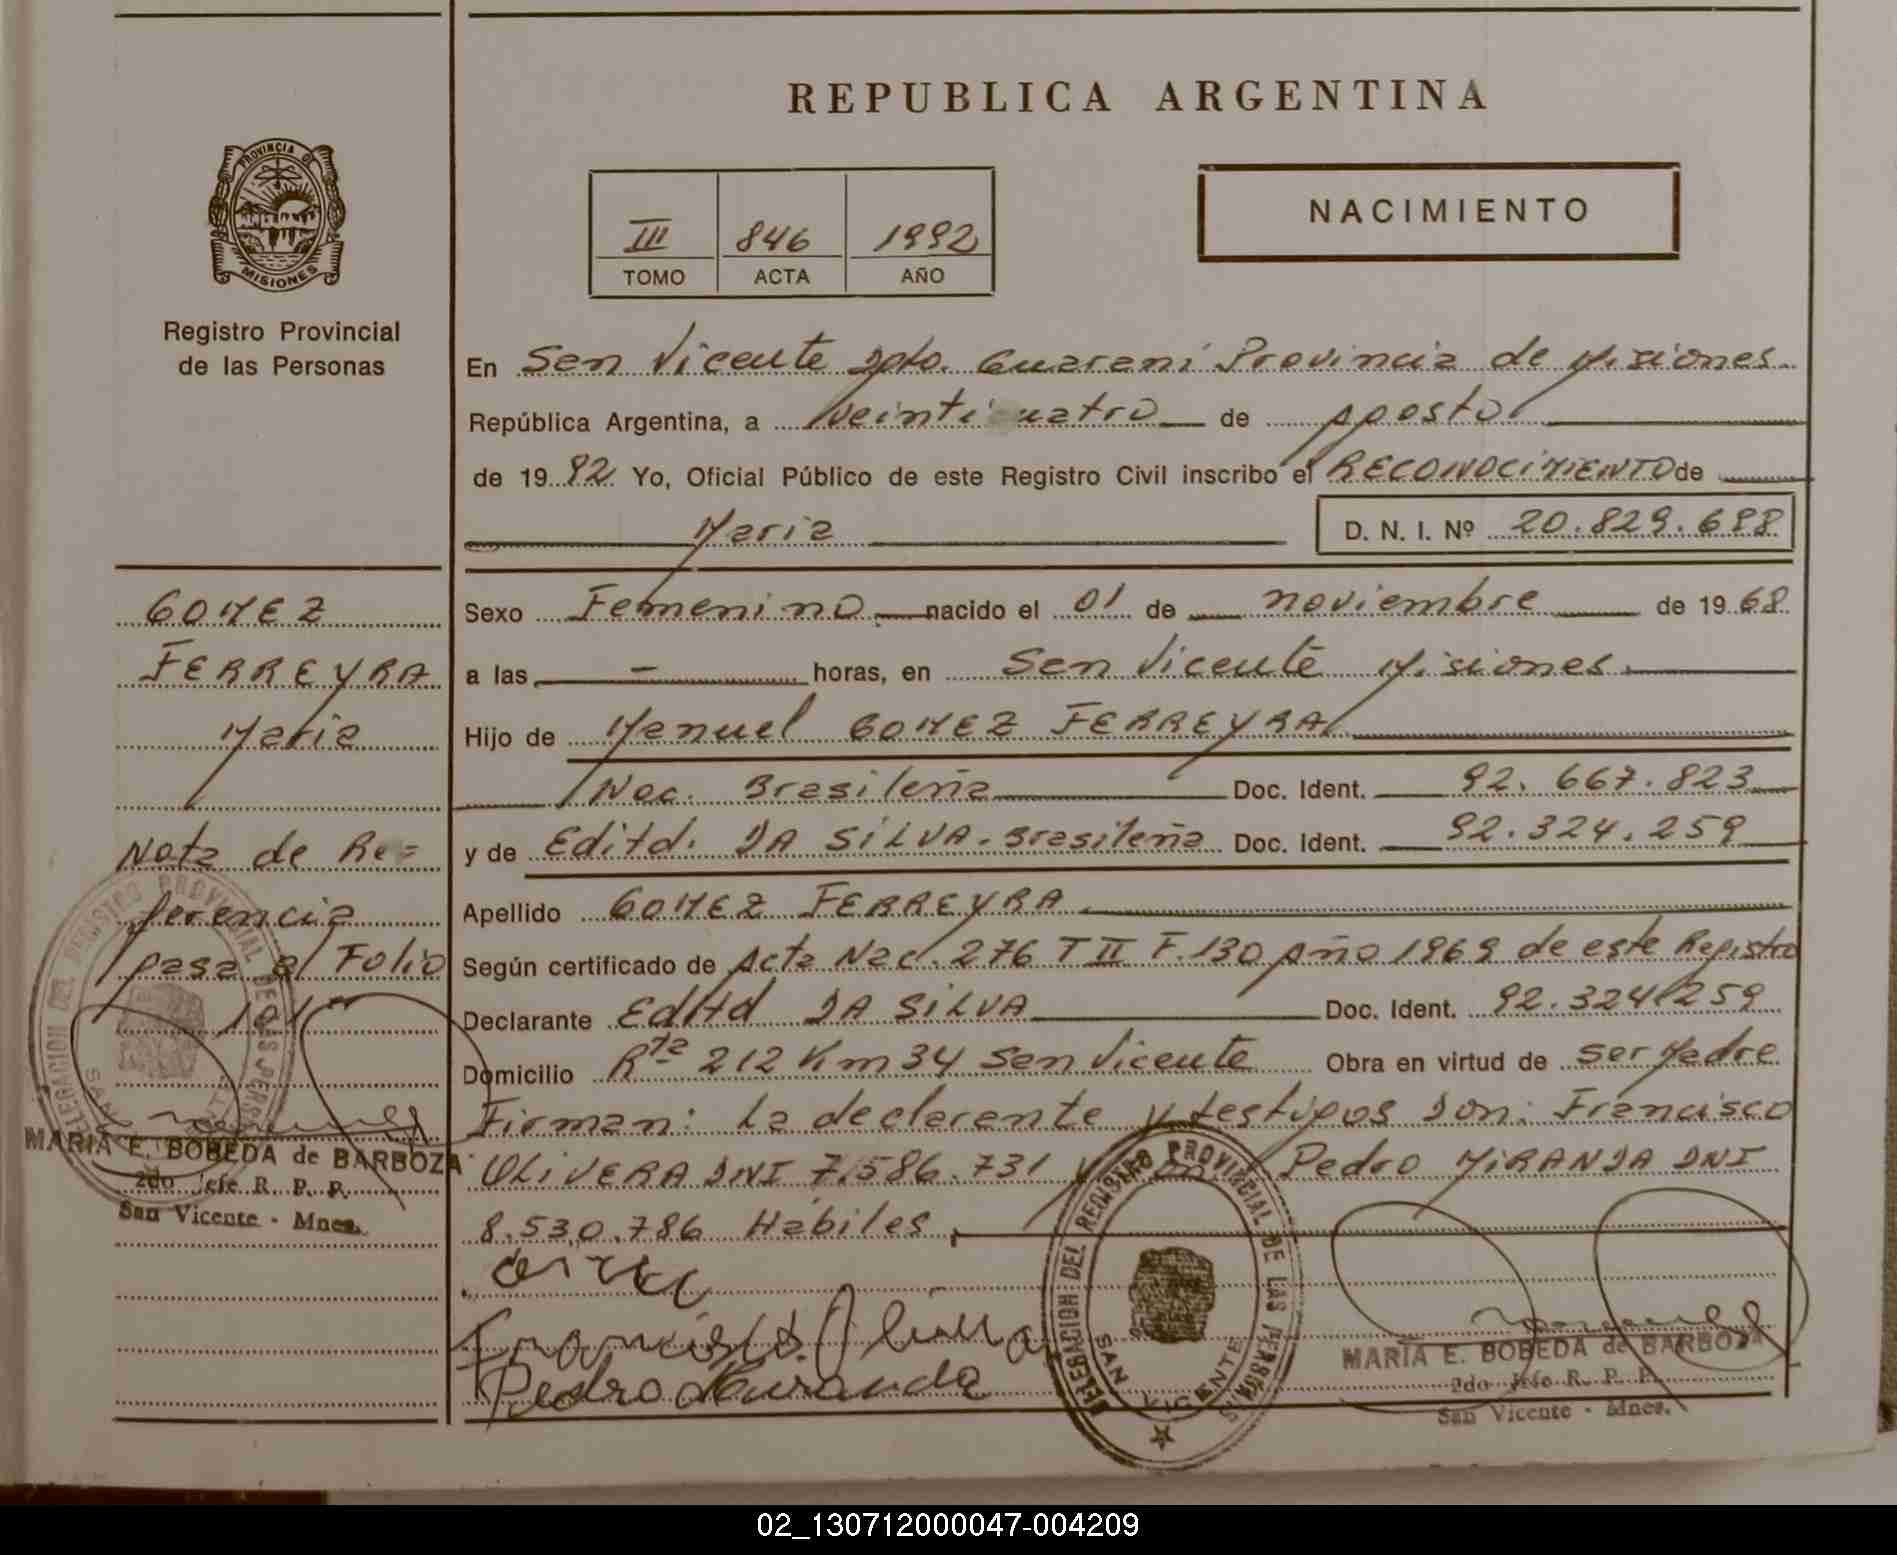 REPUBLICA ARGENTINA
PROVINCIA DE
MISIONES
Registro Provincial
de las Personas
III 846 1992
TOMO ACTA AÑO
NACIMIENTO
En San Vicente Dpto. Guarani Provincia de Misiones
República Argentina, a veinticuatro de Agosto
de 1992 Yo, Oficial Público de este Registro Civil inscribo el RECONOCIMIENTO de
Maria D. N. I. Nº 20.829.698
Sexo Femenino nacido el 01 de noviembre de 1968
a las - horas, en San Vicente Misiones
Hijo de Manuel GOMEZ FERREYRA
Nac. Brasileña Doc. Ident. 92.667.823
y de Editd. DA SILVA. Brasileña Doc. Ident. 92.324.259
Apellido GOMEZ FERREYRA
Según certificado de Acta Nac. 276 T II F. 130 Año 1969 de este Registro
Declarante Editd DA SILVA Doc. Ident. 92.324.259
Domicilio Rta 212 Km 34 San Vicente Obra en virtud de ser Madre
Firman: La declarante y testigos Don: Francisco
OLIVERA DNI 7.586.731 y Pedro MIRANDA DNI
8.530.786 Hábiles
Francisco Olivera
Pedro Miranda
DELEGACION DEL REGISTRO PROVINCIAL DE LAS PERSONAS
SAN VICENTE
MARIA E. BOBEDA de BARBOZA
2do Jefe R. P. P.
San Vicente - Mnes.
GOMEZ
FERREYRA
Maria
Nota de Re=
ferencia
pasa al Folio
101
DELEGACION DEL REGISTRO PROVINCIAL DE LAS PERSONAS
SAN VICENTE
MARIA E. BOBEDA de BARBOZA
2do Jefe R. P. P.
San Vicente - Mnes.
02_130712000047-004209